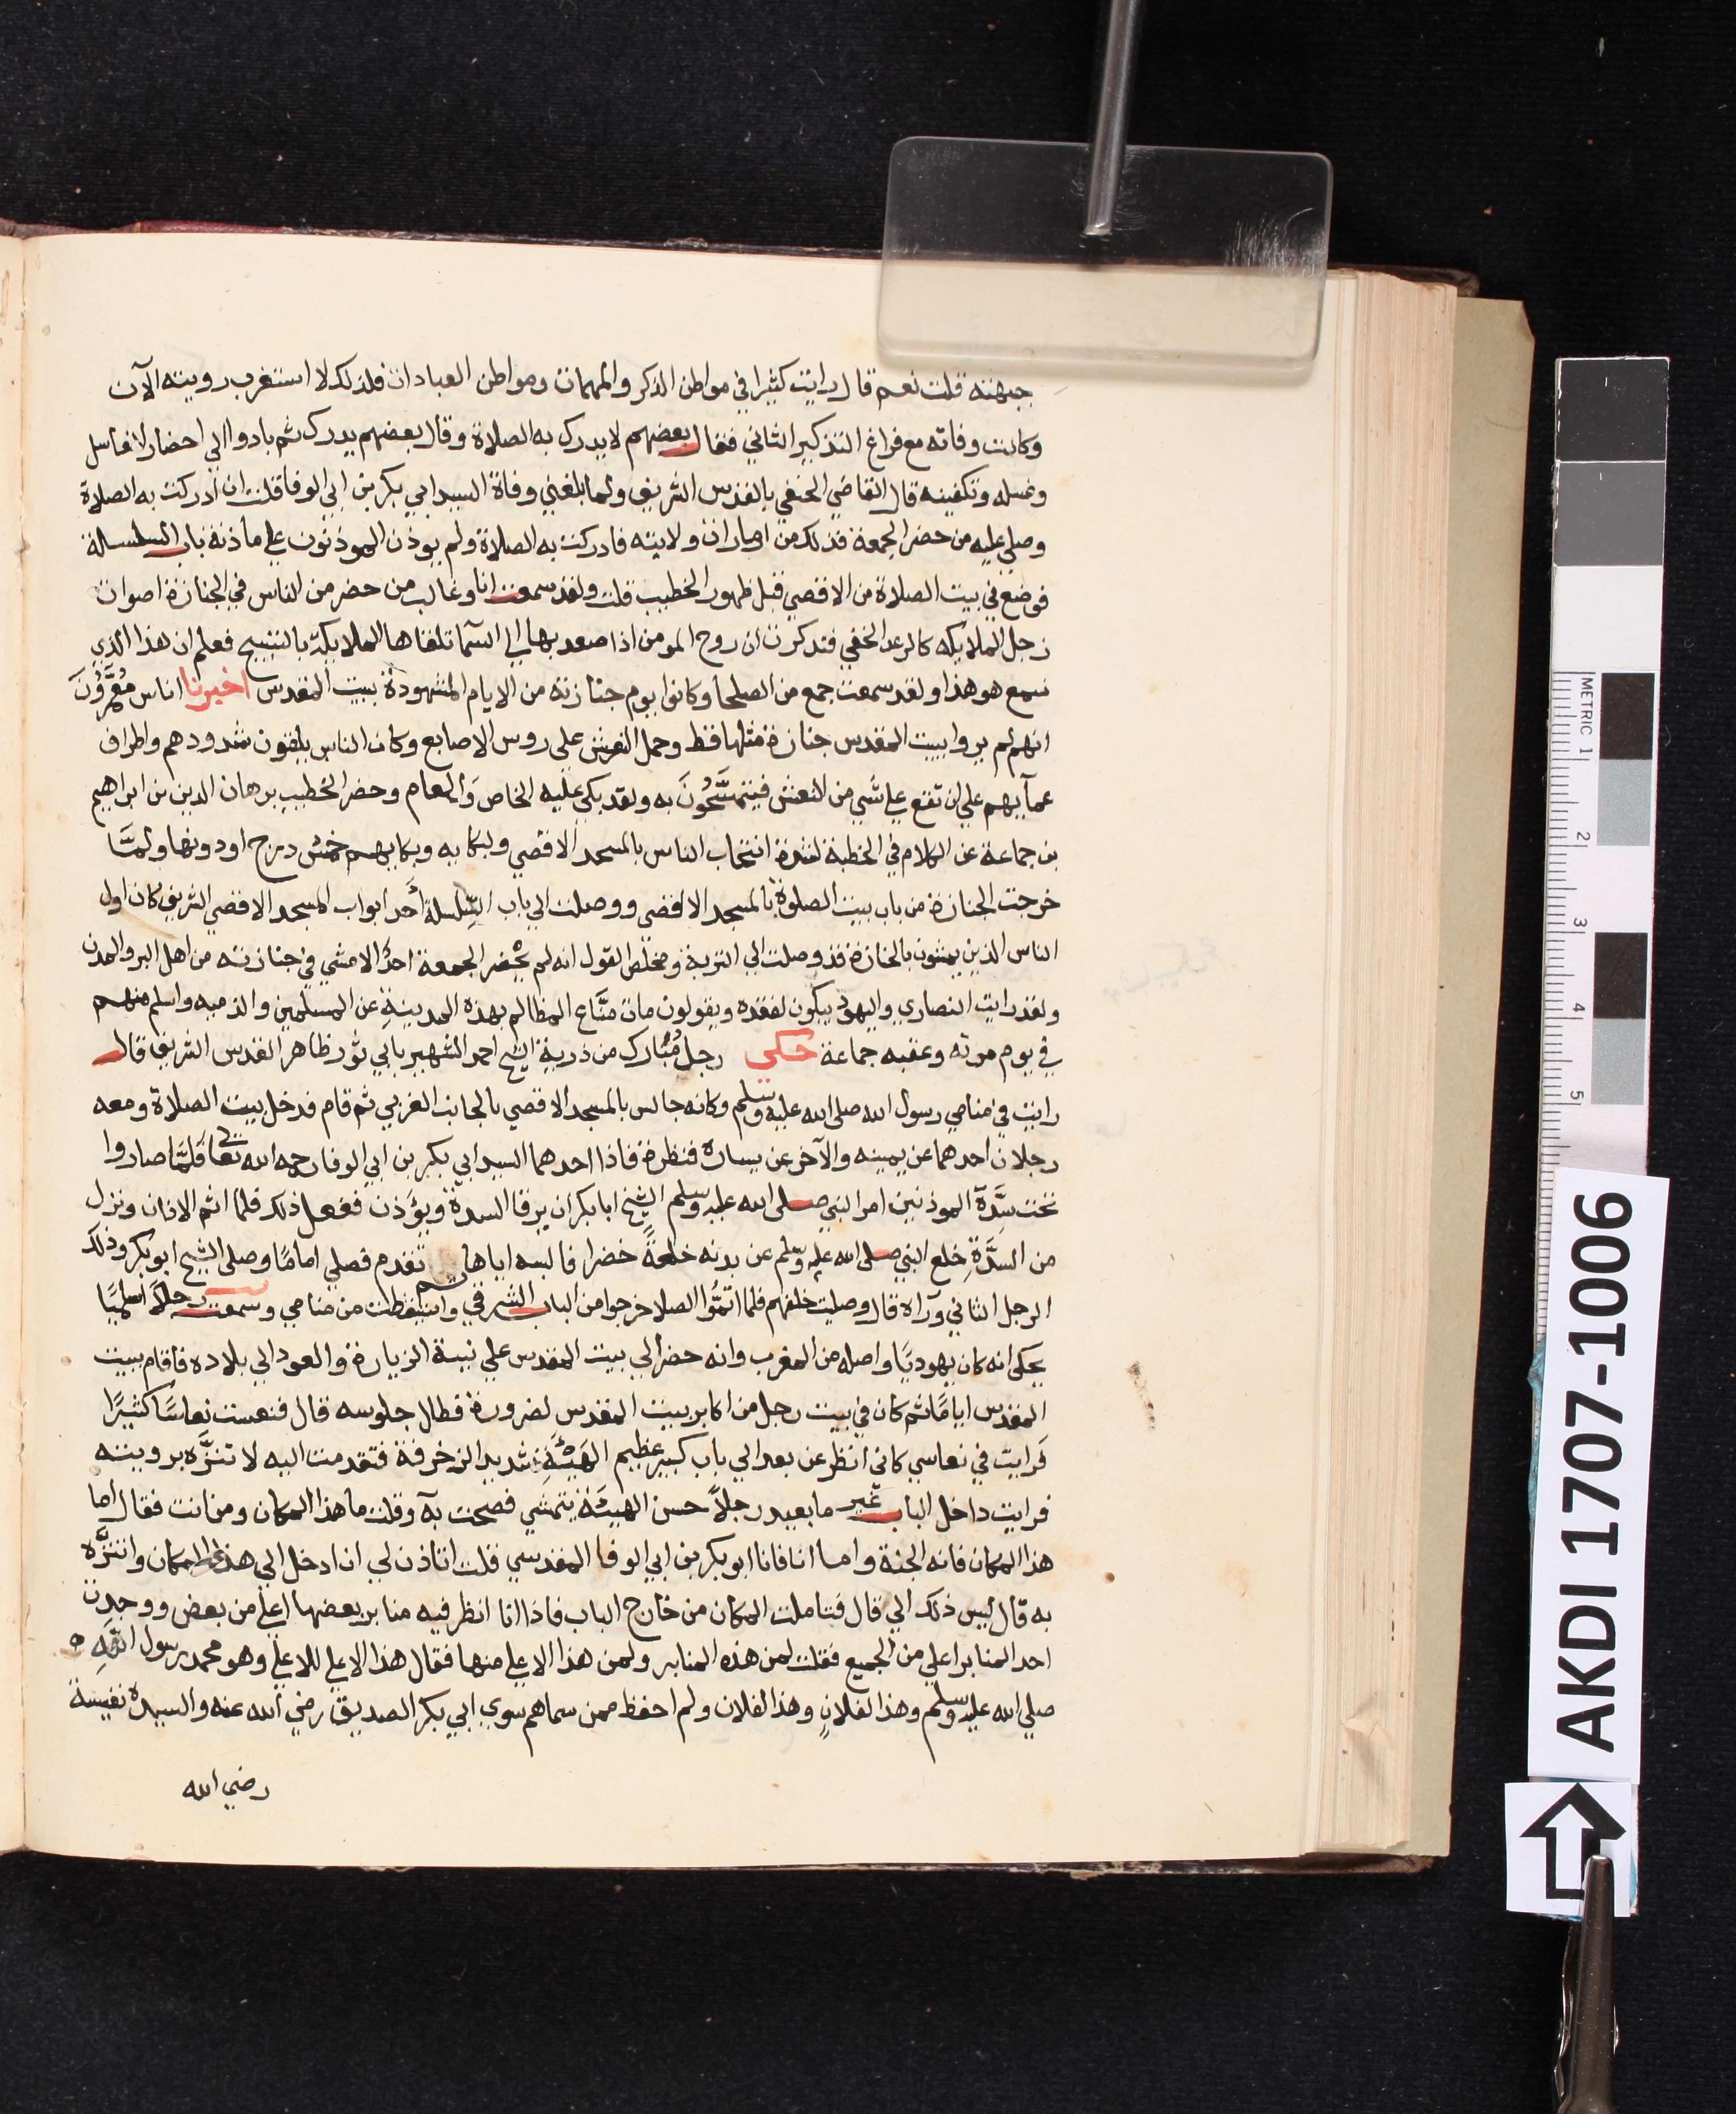 جبهته قلت نعم قال رايت كثيرا في مواطن الذكر والمهمات ومواطن العبادات فلذلك لا استغرب رويته الآن
وكانت وفاته مع فراغ التذكير الثاني فقال بعضهم لا يدرك به الصلاة وقال بعضهم يدرك ثم بادوا الي احضار لاغاسل
وغسله وتكفينه قال القاضي الحنفي بالقدس الشريف ولما بلغني وفاة السيد ابي بكر بن ابي الوفا قلت ان ادركت به الصلاة
وصلي عليه من حضر الجمعة فذلك من امارات ولايته فادركت به الصلاة ولم يوذن الموذنون علي ماذنة باب السلسالة
فوضع في بيت الصلاة من الاقصي قبل ظهور الخطيب قلت ولقد سمعت انا وغالب من حضر من الناس في الجنازة اصوات
زجل الملايكه كالرعد الخفي فتذكرت ان روح المومن اذا صعد بها الي السمآ تلقاها الملايكة بالتسبيح فعلم ان هذا الذي
نسمع هو هذا ولقد سمعت جمع من الصلحا وكانوا يوم جنازته من الايام المشهودة ببيت المقدس اخبرنا اناس مُعَمَّرُونَ
انهم لم يروا ببيت المقدس جنازة مثلها قط وحمل النعش علي روس الاصابع وكان الناس يلقون شدودهم واطراف
عمآيمهم علي ان تقع علي شَي من النعش فيتمسَّحُونَ به ولقد بكي عليه الخاص وَالعام وحضر الخطيب برهان الدين بن ابراهيم
بن جماعة عن الكلام في الخطبة لشدة انتحاب الناس بالمسجد الاقصي ولبكايه وبكايهم خمس درج او دونها ولمَّا
خرجت الجنازة من باب بيت الصلوة بالمسجد الاقصي ووصلت الي باب السِّلسلة أحد ابواب المسجد الاقصي الشريف كان اول
الناس الذين يمشون بالجنازة قد وصلت الي التربة ومخلص القول انه لم يحْضر الجمعة احدٌ الا مشي في جنازته من اهل البر والمدن
ولقد رايت النصاري واليهود يبكون لفقده ويقولون مات منَّاع المظالم بهذه المدينةِ عن المسلمين والذميه واسلم منهم
في يوم موته وعقبه جماعة حكى رجل مُبارك من ذرية الشيخ احمد الشهير بابي ثور ظاهر القدس الشريف قال
رايت في منامي رسول الله صلى الله عليه وسلم وكانه جالس بالمسجد الاقصي بالجانب الغربي ثم قام فدخل بيت الصلاة ومعه
رجلان احدهما عن يمينه والآخر عن يساره فنظرة فاذا احدهما السيد ابي بكر بن ابي الوفا رحمه الله تعالى فلمَّا صاروا
تحت سَّدَّة الموذنين امر النبي صلى الله عليه وسلم الشيخ ابا بكر ان يرقا السدة ويؤَذن ففعل ذلك فلما اتم الاذان ونزل
من السدَّةِ خلع النبي صلى الله عليه وسلم عن بدنه خلعةً خضرا فالبسه اياها ثم تقدم فصلي امامًا وصلى الشيخ ابو بكر وذلك
الرجل الثاني ورآاه قال وصليت خلفهم فلما اتمُّوا الصلا خرجوا من الباب الشرقي واستيقظت من منامي وسمعت رجلًا اسلميًا
يحكى انه كان يهوديًا واصله من المغرب وانه حضر الي بيت المقدس علي نيـة الزيارة والعود الي بلاده فاقام ببيت
المقدس ايامًا ثم كان في بيت رجل من اكابر بيت المقدس لضرورة فطال جلوسه قال فنعست نعاسًا كثيرًا
فَرايت في نعاسي كاني انظر عن بعد الي باب كبير عظيم الهَيْئَةِ شديد الزخرفة فتقدمت اليه لاتنزَّه برويته
فرايت داخل الباب غير ما بعيد رجلاً حسن الهيئة يتمشي فصحت به وقلت ما هذا المكان ومن انت فقال اما
هذا المكان فانه الجنة واما انا فانا ابو بكر بن ابي الوفا المقدسي قلت اتاذن لي ان ادخل الي هذا المكان واتنزَّه
به قال ليس ذلك الي قال فتاملت المكان من خارج الباب فاذا انا انظر فيه منابر بعضها اعلي من بعض ووجدت
احد المنابر اعلي من الجميع فقلت لمن هذه المنابر ولمن هذا الاعلي منها فقال هذا الاعلي للاعلي وهو محمد رسول اللَّهِ
صلي الله عليه وسلم وهذا لفلانٍ وهذا لفلان ولم احفظ ممن سماهم سوي ابي بكر الصديق رضي الله عنه والسيده نفيسة
رضي الله
AKDI 1707-1006
METRIC 1 2 3 4 5